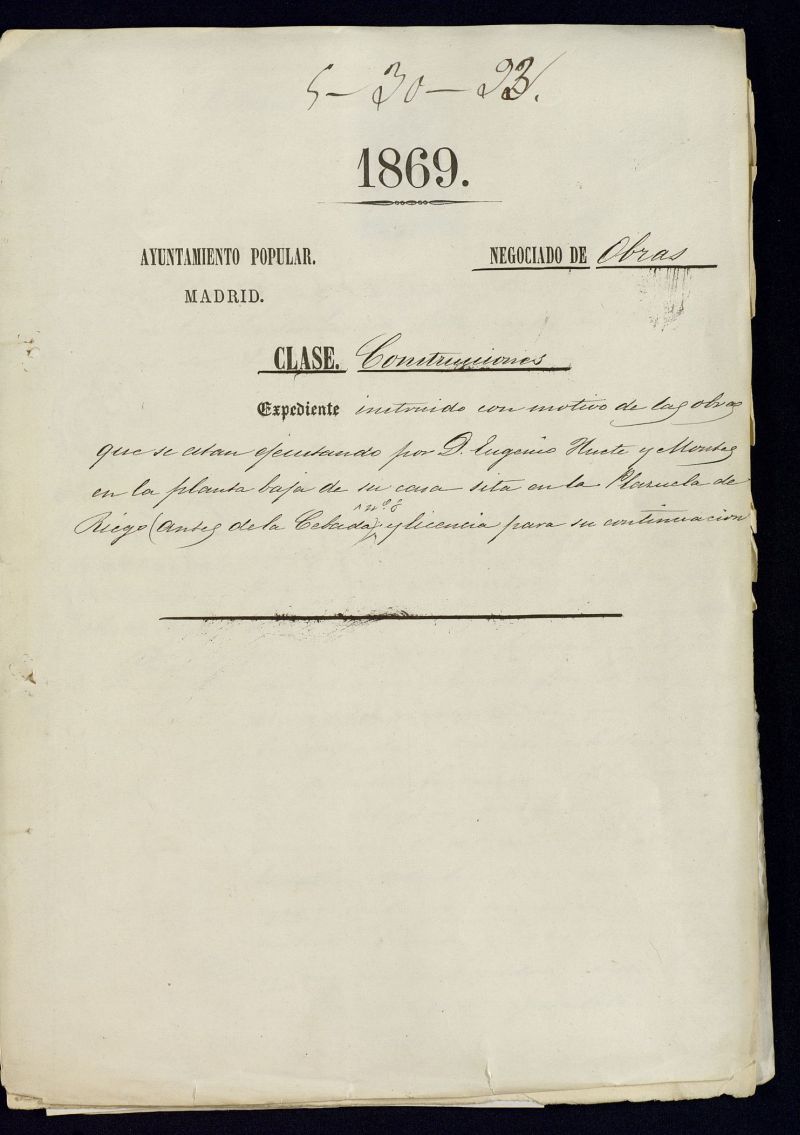 5-30-23.
1869.
AYUNTAMIENTO POPULAR.
MADRID.
NEGOCIADO DE Obras
CLASE. Construcciones
Expediente instruido con motivo de las obras
que se estan ejecutando por D. Eugenio Huete y Montes
en la planta baja de su casa sita en la Plazuela de
Riego (antes de la Cebada) nº 8 y licencia para su continuacion